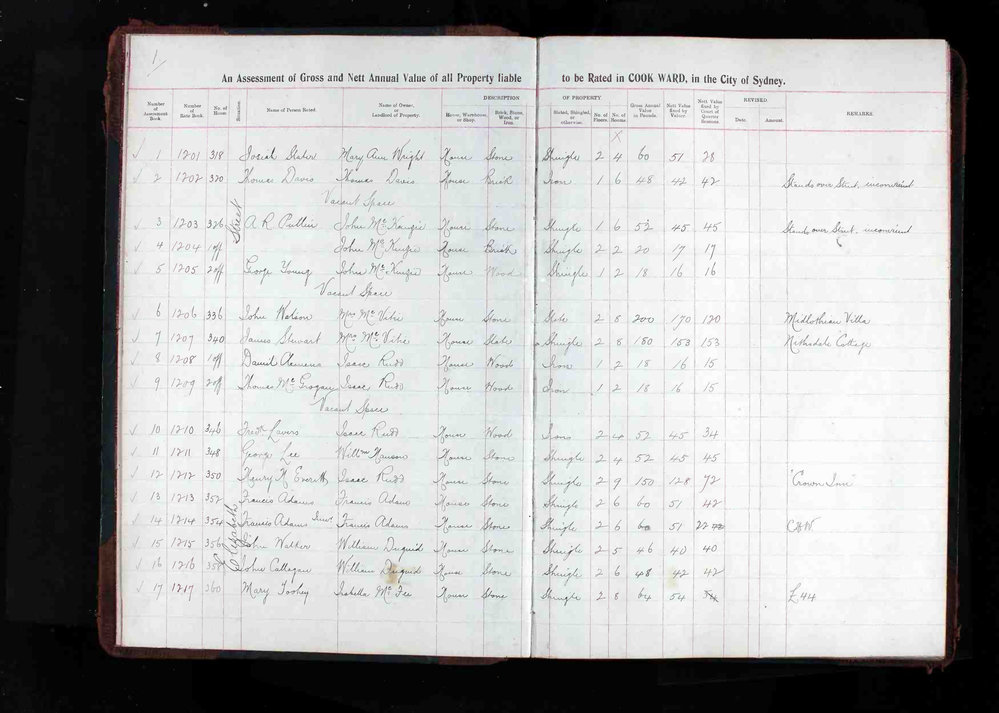 1/
An Assessment of Gross and Nett Annual Value of all Property liable to be Rated in COOK WARD, in the City of Sydney.
Number of Assessment Book. Number of Rate Book. No. of House Situation. Name of Person Rated. Name of Owner, or Landlord of Property. DESCRIPTION OF PROPERTY House, Warehouse, or Shop. Brick, Stone, Wood, or Iron. Slated, Shingled, or otherwise. No. of Floors. No. of Rooms. Gross Annual Value in Pounds. Nett Value fixed by Valuer. Nett Value fixed by Court of Quarter Sessions. REVISED. Date. Amount. REMARKS.
X
✓ 1 1201 318 Josiah Slater Mary Ann Wright House Stone Shingle 2 4 60 51 28
✓ 2 1202 320 Thomas Davis Thomas Davis House Brick Iron 1 6 48 42 42 Stands over Street, inconvenient
Vacant Space
✓ 3 1203 326 Street A R Puttier John McKenzie House Stone Shingle 1 6 52 45 45 Stands over Street, inconvenient
✓ 4 1204 1 off John McKenzie House Brick Shingle 2 2 20 17 17
✓ 5 1205 2 off George Young John McKenzie House Wood Shingle 1 2 18 16 16
Vacant Space
✓ 6 1206 336 John Watson Mrs McVitie House Stone Slate 2 8 200 170 120 Midlothean Villa
✓ 7 1207 340 James Stewart Mrs McVitie House Slate Shingle 2 8 180 153 153 Nithsdale Cottage
✓ 8 1208 1 off Daniel Clemens Isaac Rudd House Wood Iron 1 2 18 16 15
✓ 9 1209 2 off Thomas McGrogan Isaac Rudd House Wood Iron 1 2 18 16 15
Vacant Space
✓ 10 1210 346 Fredk Lavers Isaac Rudd House Wood Iron 2 4 52 45 34
✓ 11 1211 348 George Lee Willm Hanson House Stone Shingle 2 4 52 45 45
✓ 12 1212 350 Henry H Everett Isaac Rudd House Stone Shingle 2 9 150 128 72 "Crown Inn"
✓ 13 1213 352 Francis Adams Francis Adams House Stone Shingle 2 6 60 51 42
✓ 14 1214 354 Elizabeth Francis Adams Junr Francis Adams House Stone Shingle 2 6 60 51 22
✓ 15 1215 356 John Walker William Duguid House Stone Shingle 2 5 46 40 40
✓ 16 1216 358 John Callegan William Duguid House Stone Shingle 2 6 48 42 42
✓ 17 1217 360 Mary Toohey Isabella McFee House Stone Shingle 2 8 64 54 54 £44